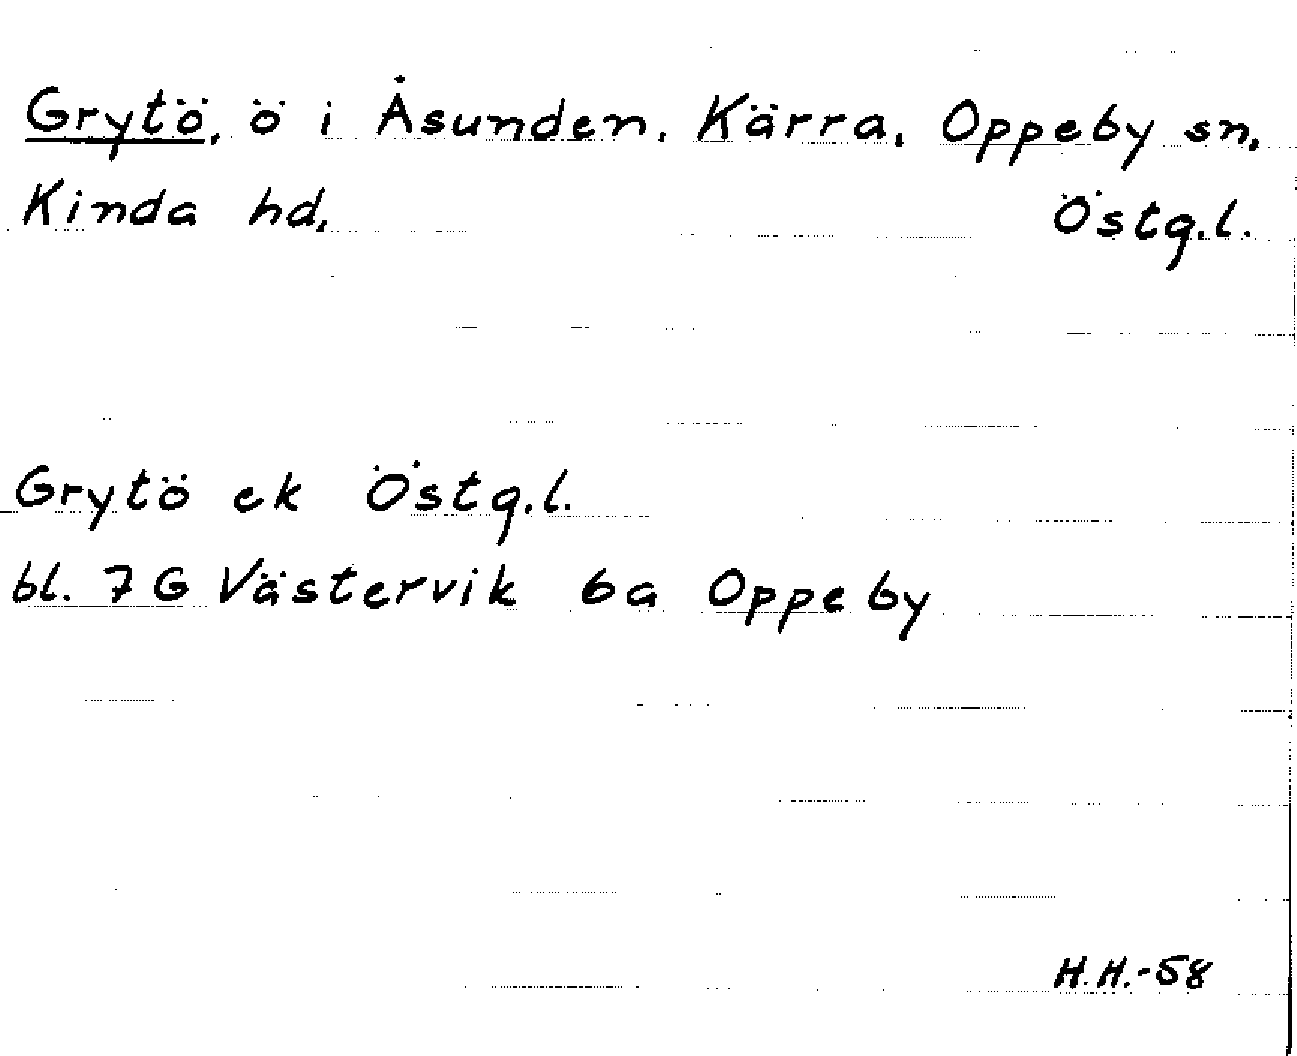 Grytö, ö i Åsunden, Kärra, Oppeby sn,
Kinda hd, Östg.l.
Grytö ek Östg.l.
bl. 7G Västervik 6a Oppeby
H.H.-58